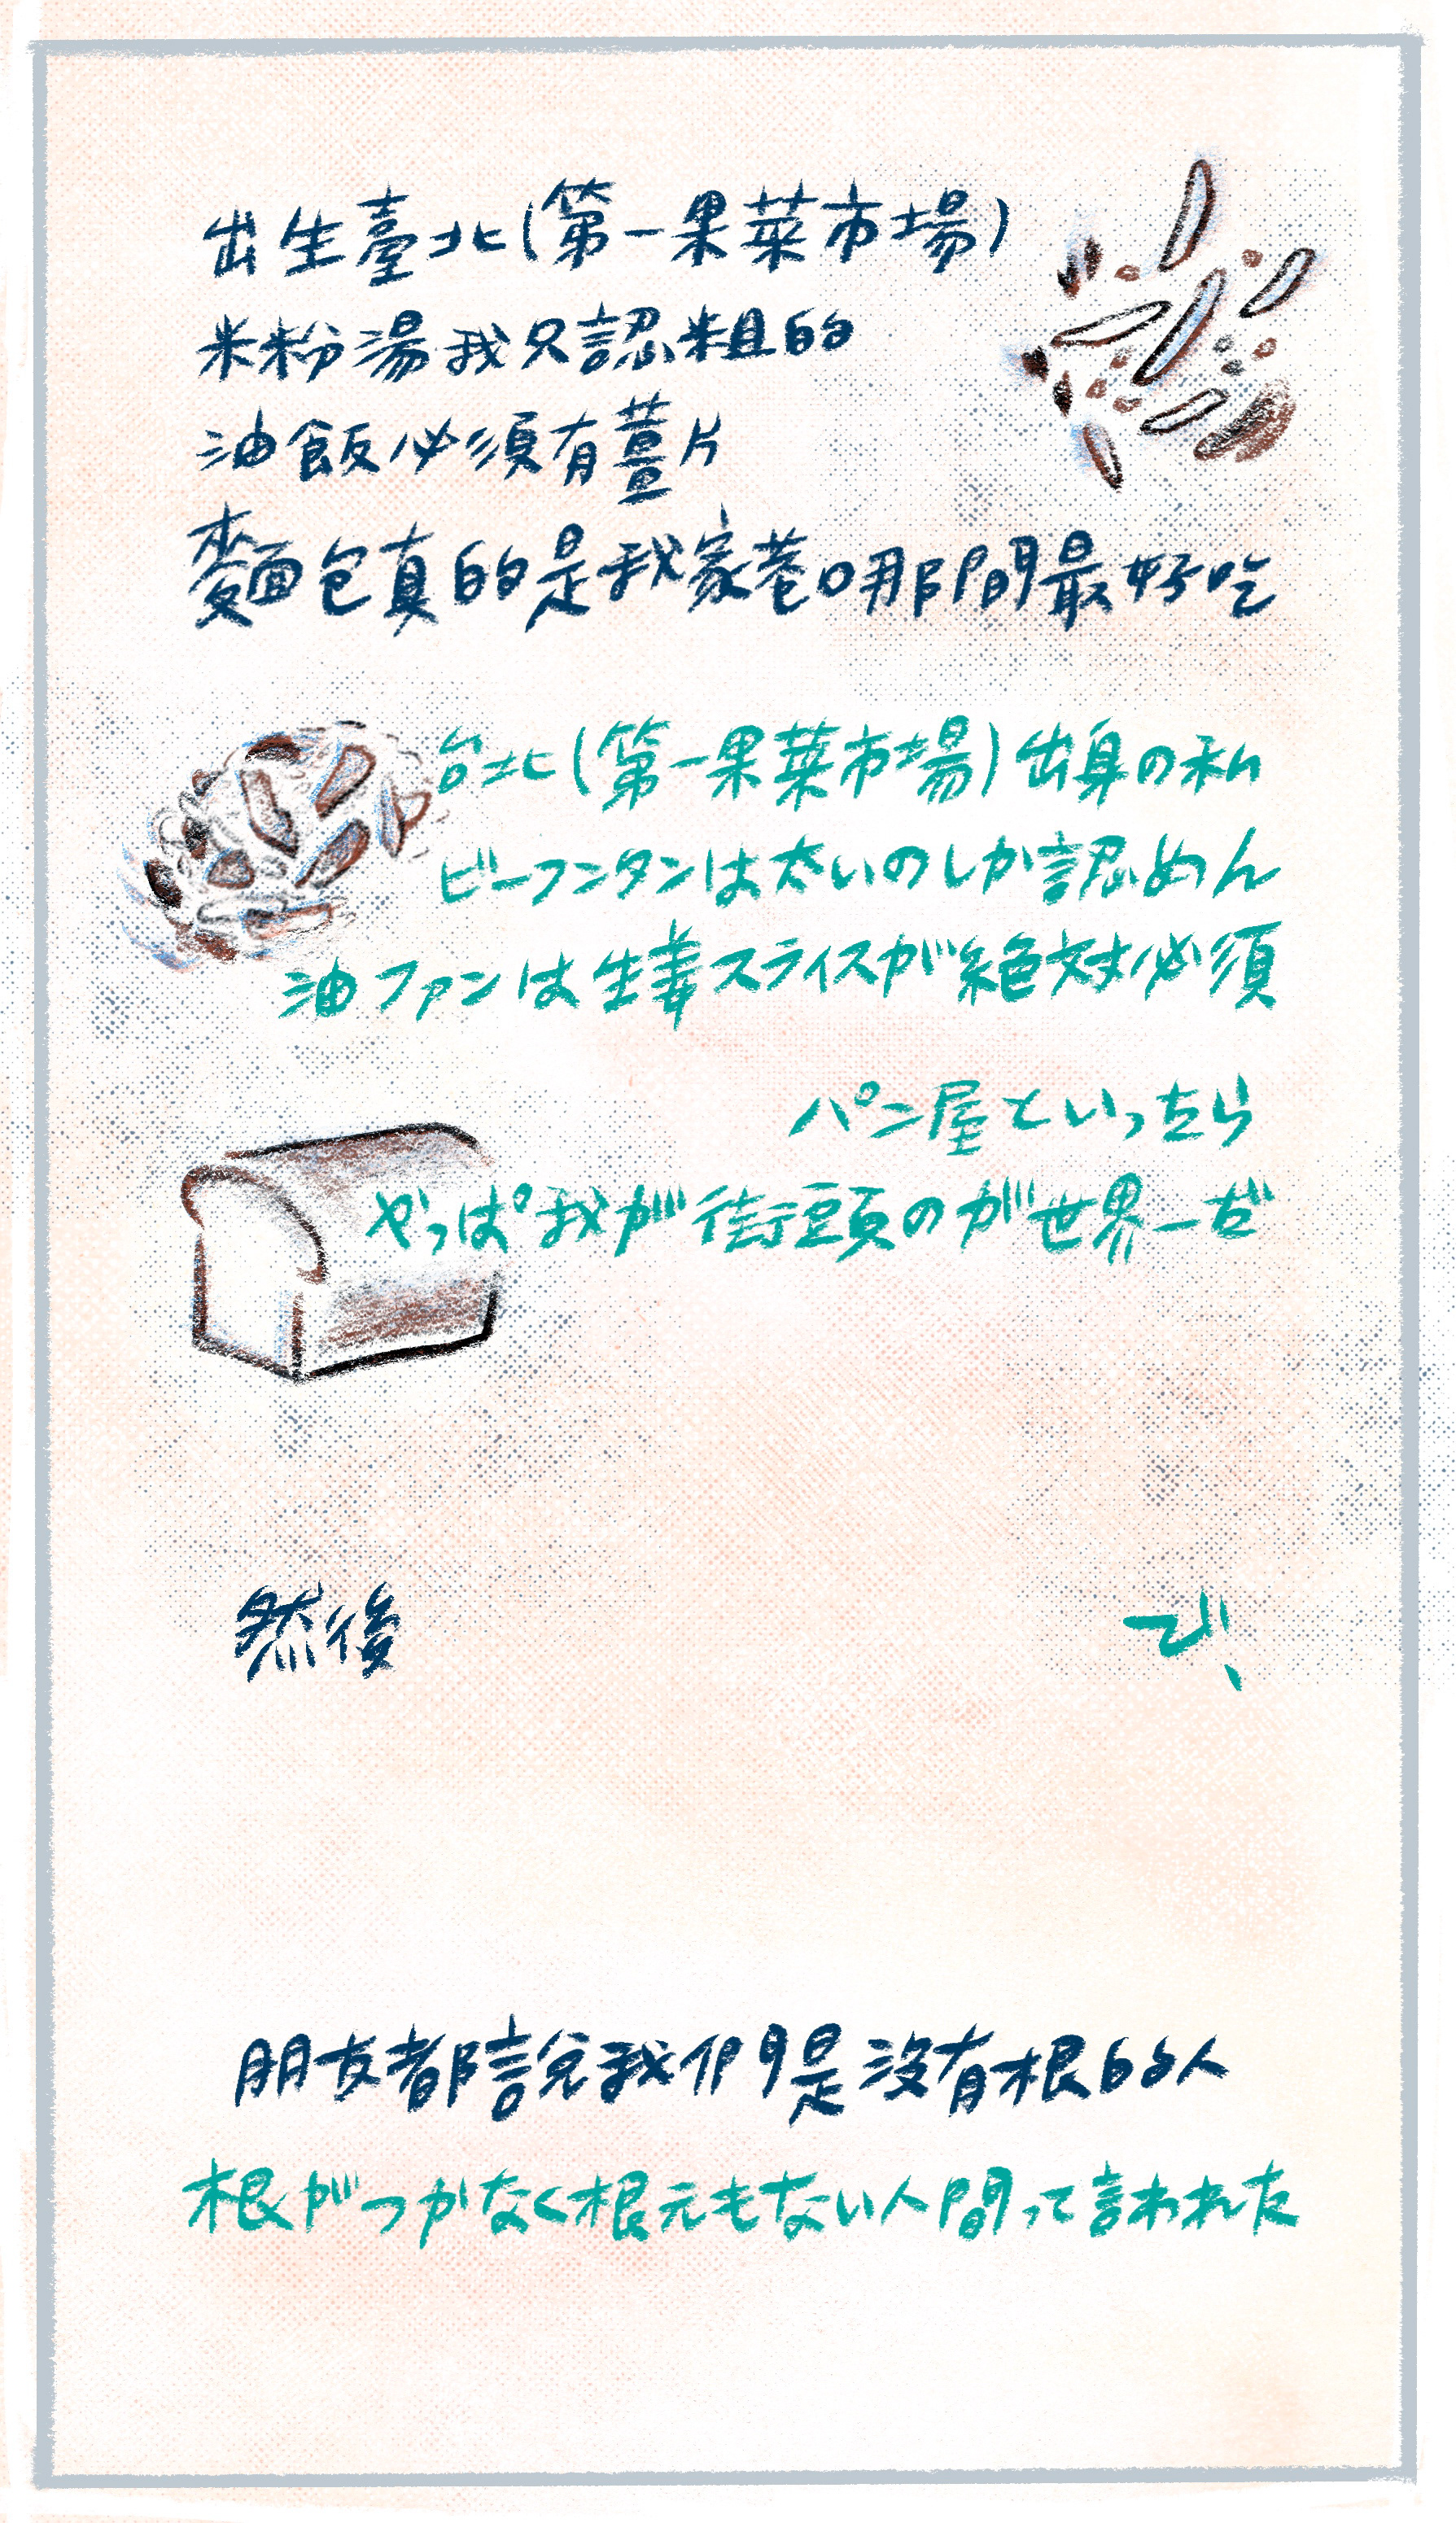 出生臺北(第一果菜市場)
米粉湯我只認粗的
油飯必須有薑片
麵包真的是我家巷口那間最好吃
台北(第一果菜市場)出身の私
ビーフンタンは太いのしか認めん
油ファンは生姜スライスが絶対必須
パン屋といったら
やっぱ我が街頭のが世界一だ
然後
で、
朋友都說我們是沒有根的人
根がつかなく根元もない人間って言われた